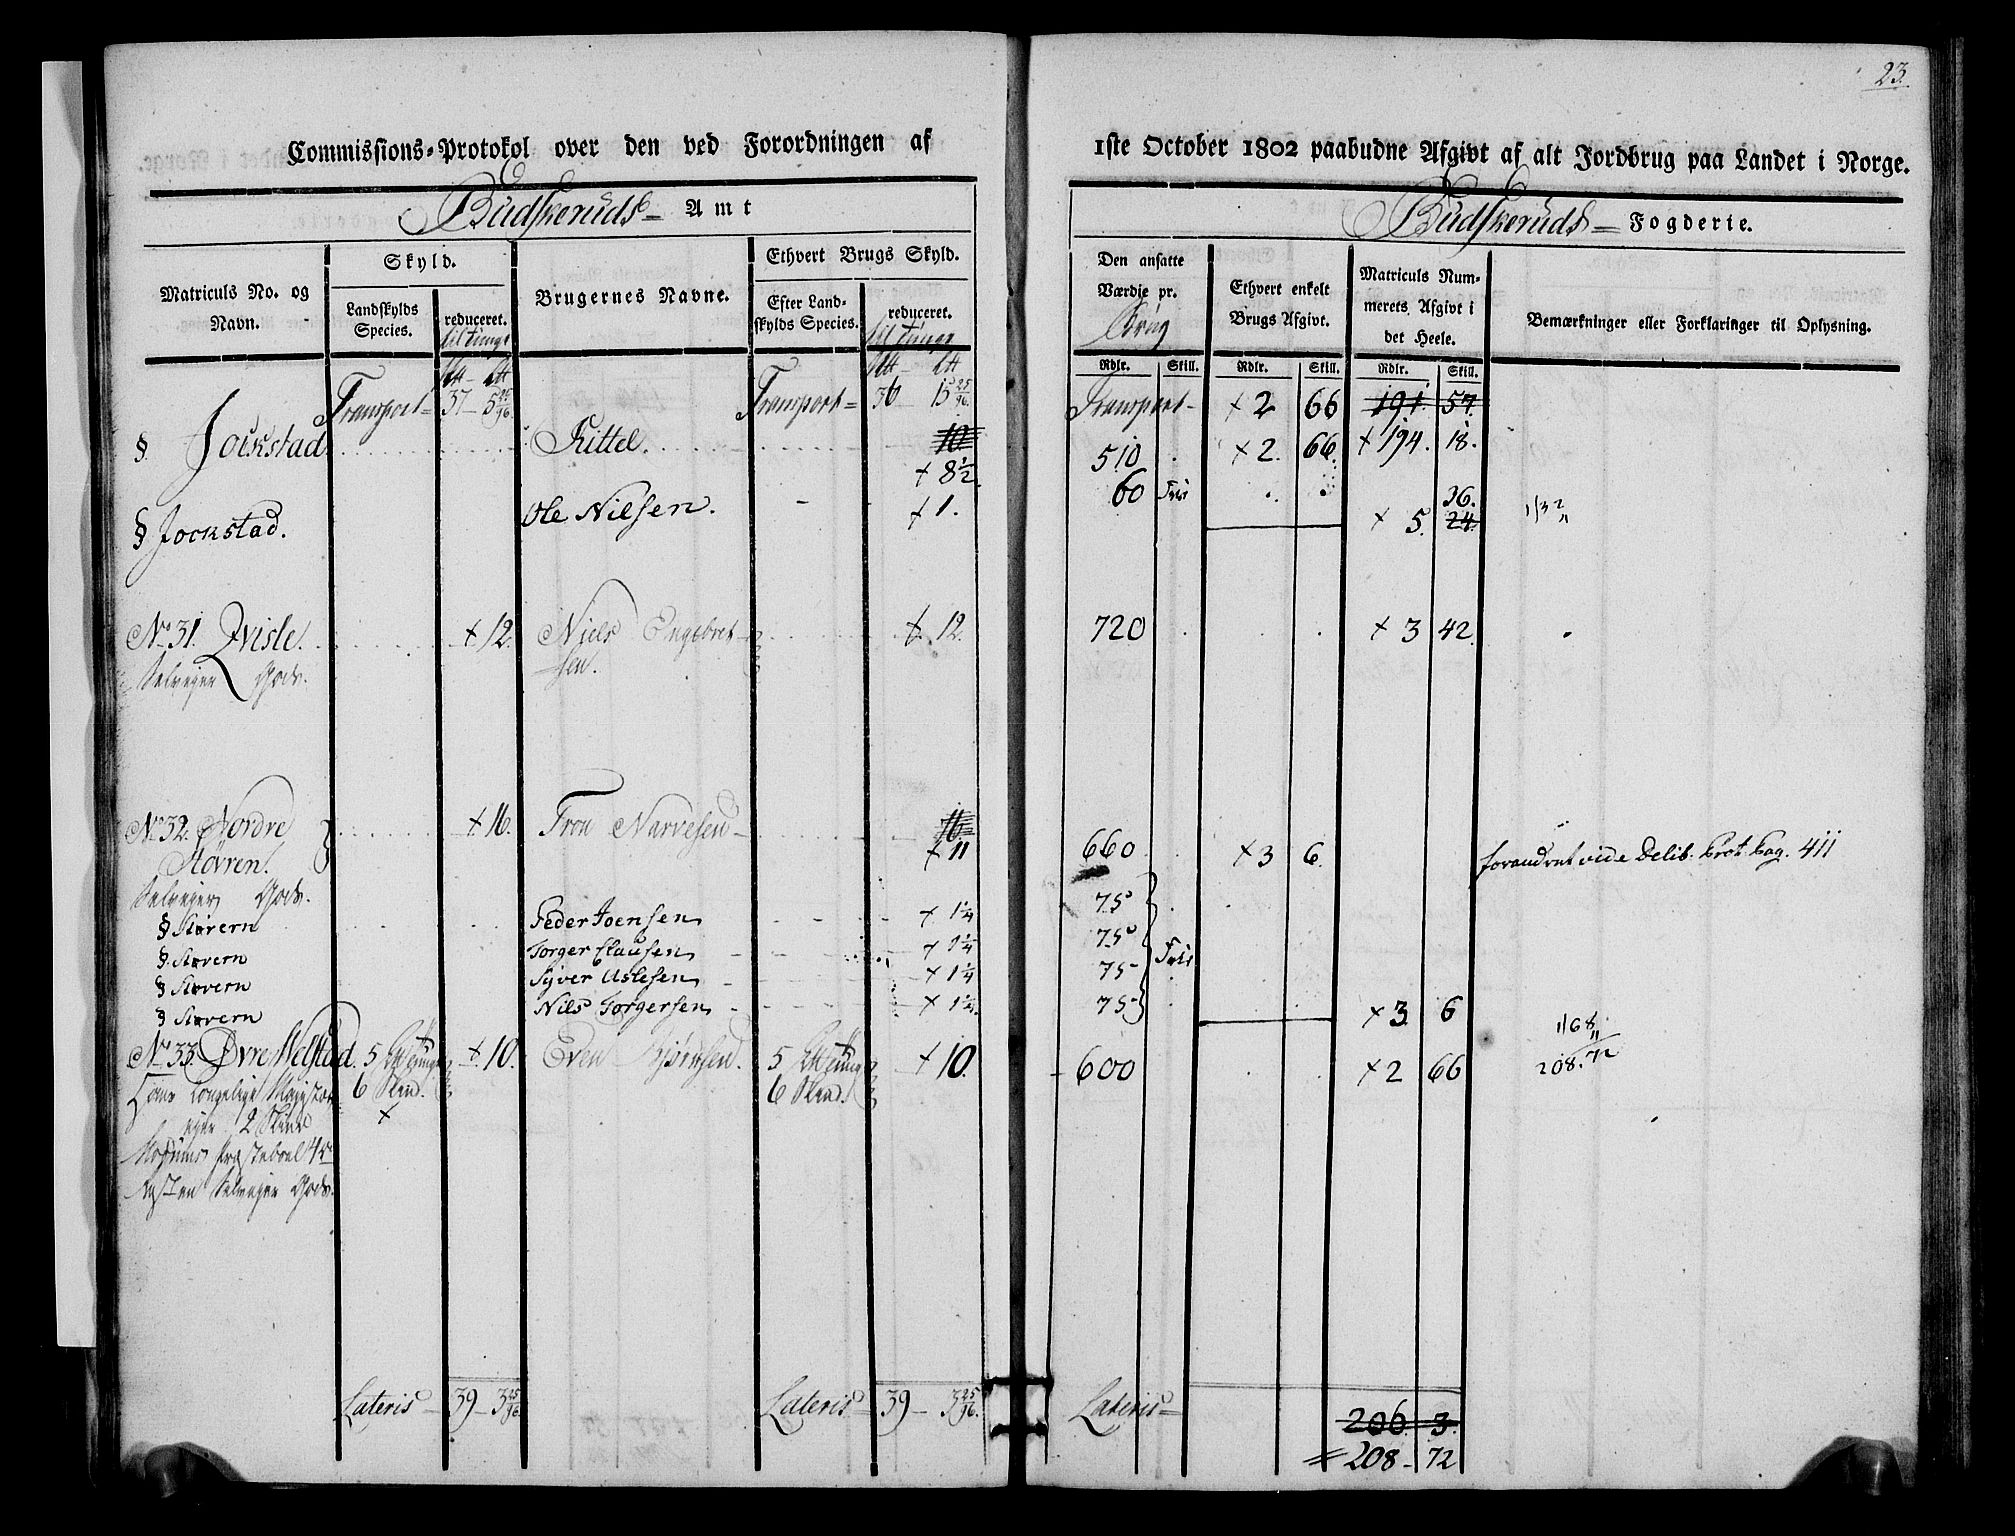 23.
Commissions-Protokol over den ved Forordningen af
1ste October 1802 paabudne Afgivt af alt Jordbrug paa Landet i Norge.
Budskeruds Amt
Budskeruds Fogderie.
Matriculs No. og Navn.
Skyld.
Landskylds Species.
reduceret.
til Tunge
Brugernes Navne.
Ethvert Brugs Skyld.
Efter Landskylds Species.
reduceret.
til Tunge
Den ansatte Værdie pr. Brug
Rdlr. Skill.
Ethvert enkelt Brugs Afgivt.
Rdlr. Skill.
Matriculs Nummerets Afgivt i det Heele.
Rdlr. Skill.
Bemærkninger eller Forklaringer til Oplysning.
Transport = 37 - 5 25/96 Transport = 36 - 15 25/96 Transport - + 2 66 191. 57.
§. Jockstad Kittel 10 510 + 2. 66. + 194. 18.
+ 8 1/2
§ Jockstad. Ole Nilsen. + 1. 60 Frie 36.
+ 5. 24. 1/32
No 31. Qvisle. + 12. Niels Engebret- + 12. 720 + 3 42.
Selveyer Gods. sen.
No 32. Nordre + 16. Tron Narvesen 16
Støvren. + 11 660 + 3 6. forandret vide Delib. Prot. Pag. 411
Selveyer Gods.
§ Støvern Peder Joensen + 1 1/4 75
§. Støvern Torger Clausen + 1 1/4 75 Frie
§ Støvern Syver Aslesen + 1 1/4 75
§ Støvern Nils Torgersen + 1 1/4 75 + 3 6
1/68
No 33. Øvre Welstad. 5 Tunge + 10. Even Bjørnsen. 5 Tunge + 10. 600 + 2 66 208. 72
Hans Kongelige Mayestæt 6 Skind. 6 Skind.
eyer 2 Skind +
Præsteboel
Resten Selveyer Gods.
Lateris 39 - 3 25/96 Lateris 39 - 3 25/96. Lateris 206. 3.
= 208 - 72